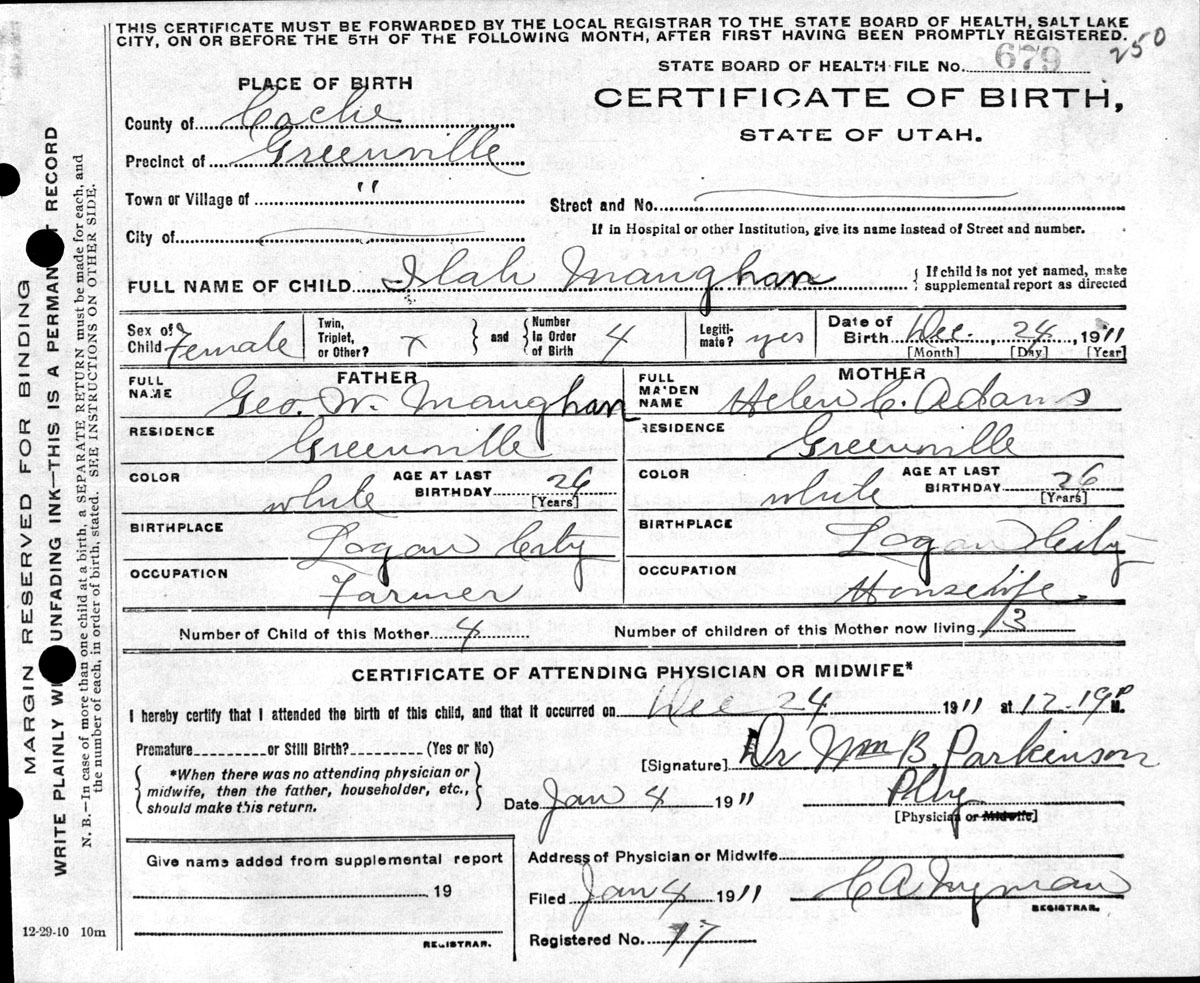 THIS CERTIFICATE MUST BE FORWARDED BY THE LOCAL REGISTRAR TO THE STATE BOARD OF HEALTH, SALT LAKE
CITY, ON OR BEFORE THE 5TH OF THE FOLLOWING MONTH, AFTER FIRST HAVING BEEN PROMPTLY REGISTERED.
250
STATE BOARD OF HEALTH FILE No. 679
PLACE OF BIRTH
CERTIFICATE OF BIRTH,
STATE OF UTAH.
County of Cache
Precinct of Greenville
Town or Village of "
Street and No.
City of
If in Hospital or other Institution, give its name instead of Street and number.
FULL NAME OF CHILD Ilah Maughan { If child is not yet named, make
supplemental report as directed
Sex of Child Female
Twin, Triplet, or Other? x } and { Number In Order of Birth 4
Legiti-mate? yes
Date of Birth Dec. 24, 1911
[Month] [Day] [Year]
FATHER
FULL NAME Geo. W. Maughan
RESIDENCE Greenville
COLOR white AGE AT LAST BIRTHDAY 26 [Years]
BIRTHPLACE Logan City
OCCUPATION Farmer
MOTHER
FULL MAIDEN NAME Helen C. Adams
RESIDENCE Greenville
COLOR white AGE AT LAST BIRTHDAY 26 [Years]
BIRTHPLACE Logan City
OCCUPATION Housewife.
Number of Child of this Mother 4 Number of children of this Mother now living 3
CERTIFICATE OF ATTENDING PHYSICIAN OR MIDWIFE*
I hereby certify that I attended the birth of this child, and that it occurred on Dec 24 1911 at 12.19 P M.
Premature or Still Birth? (Yes or No)
{ *When there was no attending physician or
midwife, then the father, householder, etc.,
should make this return. }
[Signature] Dr Wm B. Parkinson
Phy
[Physician or Midwife]
Date Jan 4 1911
Give name added from supplemental report
19
REGISTRAR.
Address of Physician or Midwife
Filed Jan 4 1911 C A Nyman
REGISTRAR.
Registered No. 17
12-29-10 10m
MARGIN RESERVED FOR BINDING
WRITE PLAINLY WI UNFADING INK—THIS IS A PERMAN T RECORD
N. B.—In case of more than one child at a birth, a SEPARATE RETURN must be made for each, and
the number of each, in order of birth, stated. SEE INSTRUCTIONS ON OTHER SIDE.